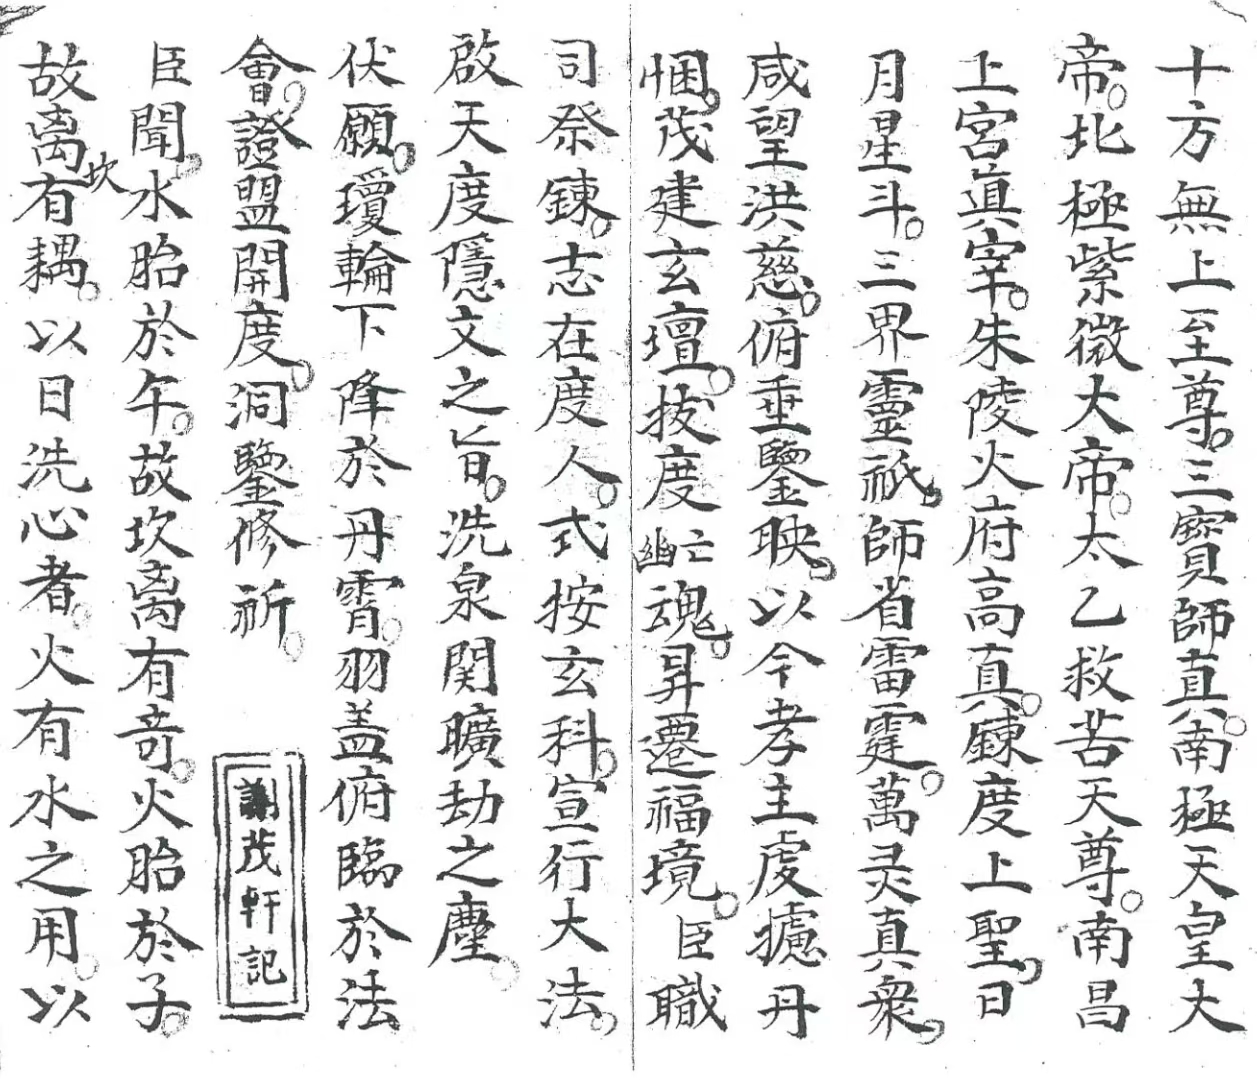 十方無上至尊。三寶師真。南極天皇大
帝。北極紫微大帝。太乙救苦天尊。南昌
上宮真宰。朱陵火府高真。鍊度上聖。日
月星斗。三界靈祇。師省雷霆。萬灵真衆。
咸望洪慈。俯垂鑒映。以今孝主虔攄丹
悃。茂建玄壇。拔度幽亡魂。昇遷福境。臣職
司祭鍊。志在度人。式按玄科。宣行大法。
啟天度隱文之旨。洗泉関曠劫之塵。
伏願。瓊輪下降於丹霄。羽盖俯臨於法
會。證盟開度。洞鑒修祈。
謝茂軒記
臣聞。水胎於午。故坎离有竒。火胎於子。
故离坎有耦。以日洗心者。火有水之用。以